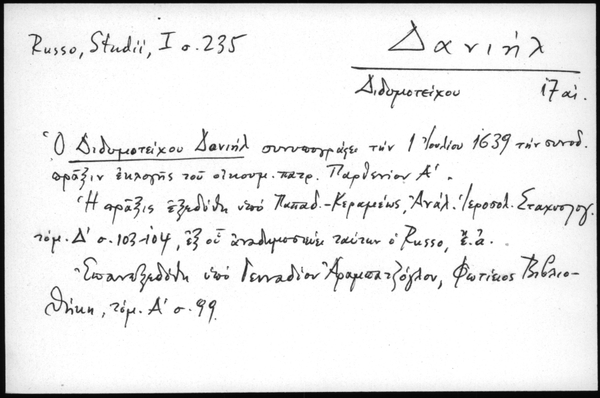 Russo, Studii, I σ. 235
Δανιήλ
Διδυμοτείχου 17 αἰ.
Ὁ Διδυμοτείχου Δανιήλ συνυπογράφει τήν 1 Ἰουλίου 1639 τήν συνοδ.
πρᾶξιν ἐκλογῆς τοῦ οἰκουμ. πατρ. Παρθενίου Α΄.
Ἡ πρᾶξις ἐξεδόθη ὑπό Παπαδ.-Κεραμέως, Ἀνάλ. Ἱεροσολ. Σταχυολογ.
τόμ. Δ΄ σ. 103-104, ἐξ οὗ ἀναδημοσιεύει ταύτην ὁ Russo, ἔ.ἀ.
Ἐπανεξεδόθη ὑπό Γενναδίου Ἀραμπατζόγλου, Φωτίειος Βιβλιο-
θήκη, τόμ. Α΄ σ. 99.